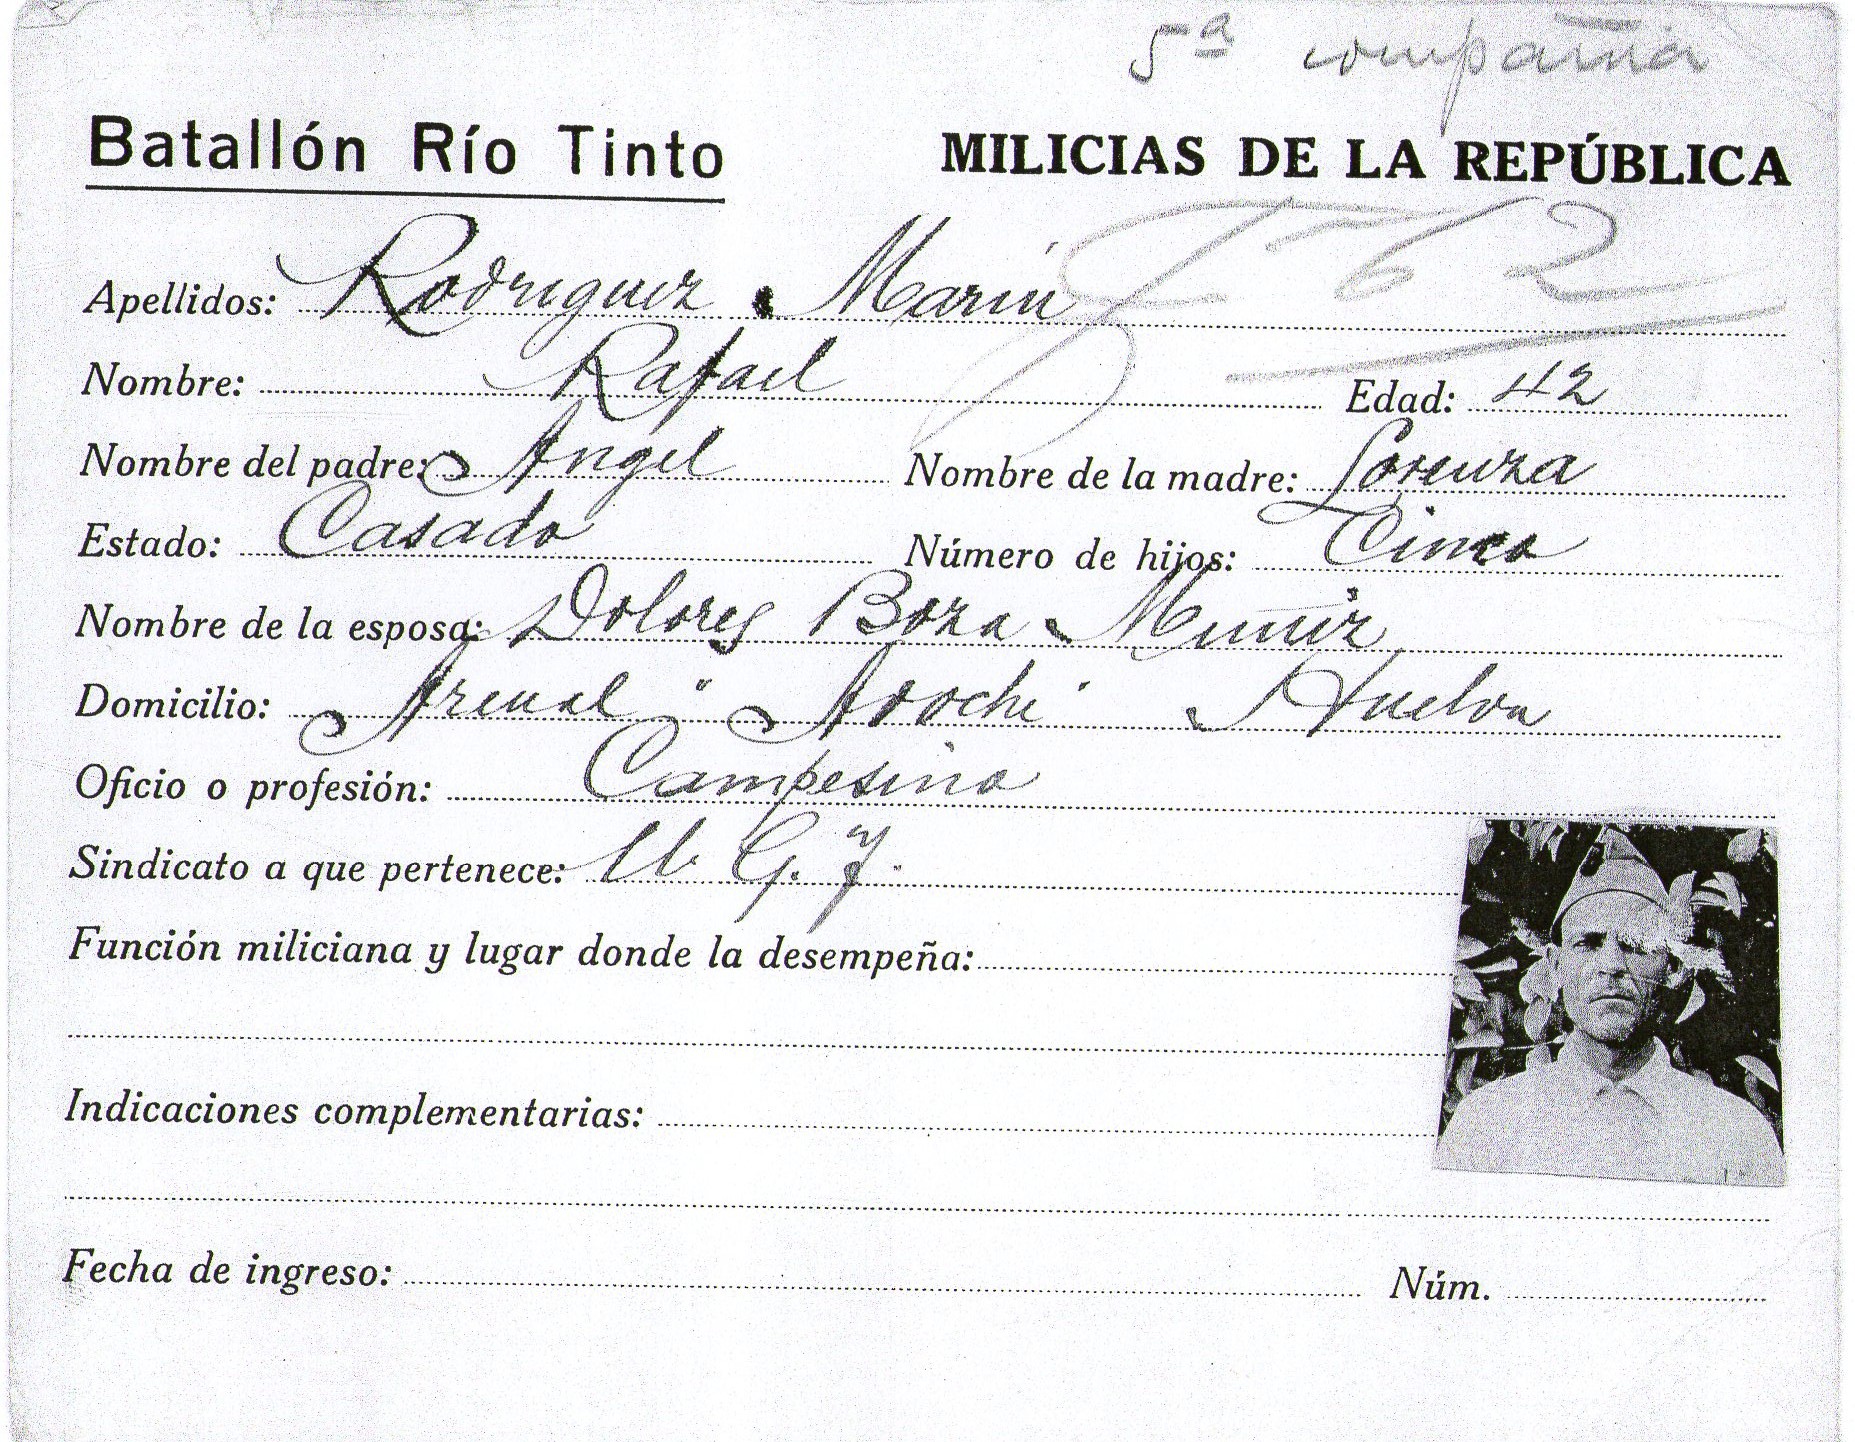 5ª compañia
Batallón Río Tinto MILICIAS DE LA REPÚBLICA
Apellidos: Rodriguez Marin
Nombre: Rafael Edad: 42
Nombre del padre: Angel Nombre de la madre: Lorenza
Estado: Casado Número de hijos: Cinco
Nombre de la esposa: Dolores Boza Muñiz
Domicilio: Arenal Aroche Huelva
Oficio o profesión: Campesino
Sindicato a que pertenece: U. G. T.
Función miliciana y lugar donde la desempeña:
Indicaciones complementarias:
Fecha de ingreso: Núm.